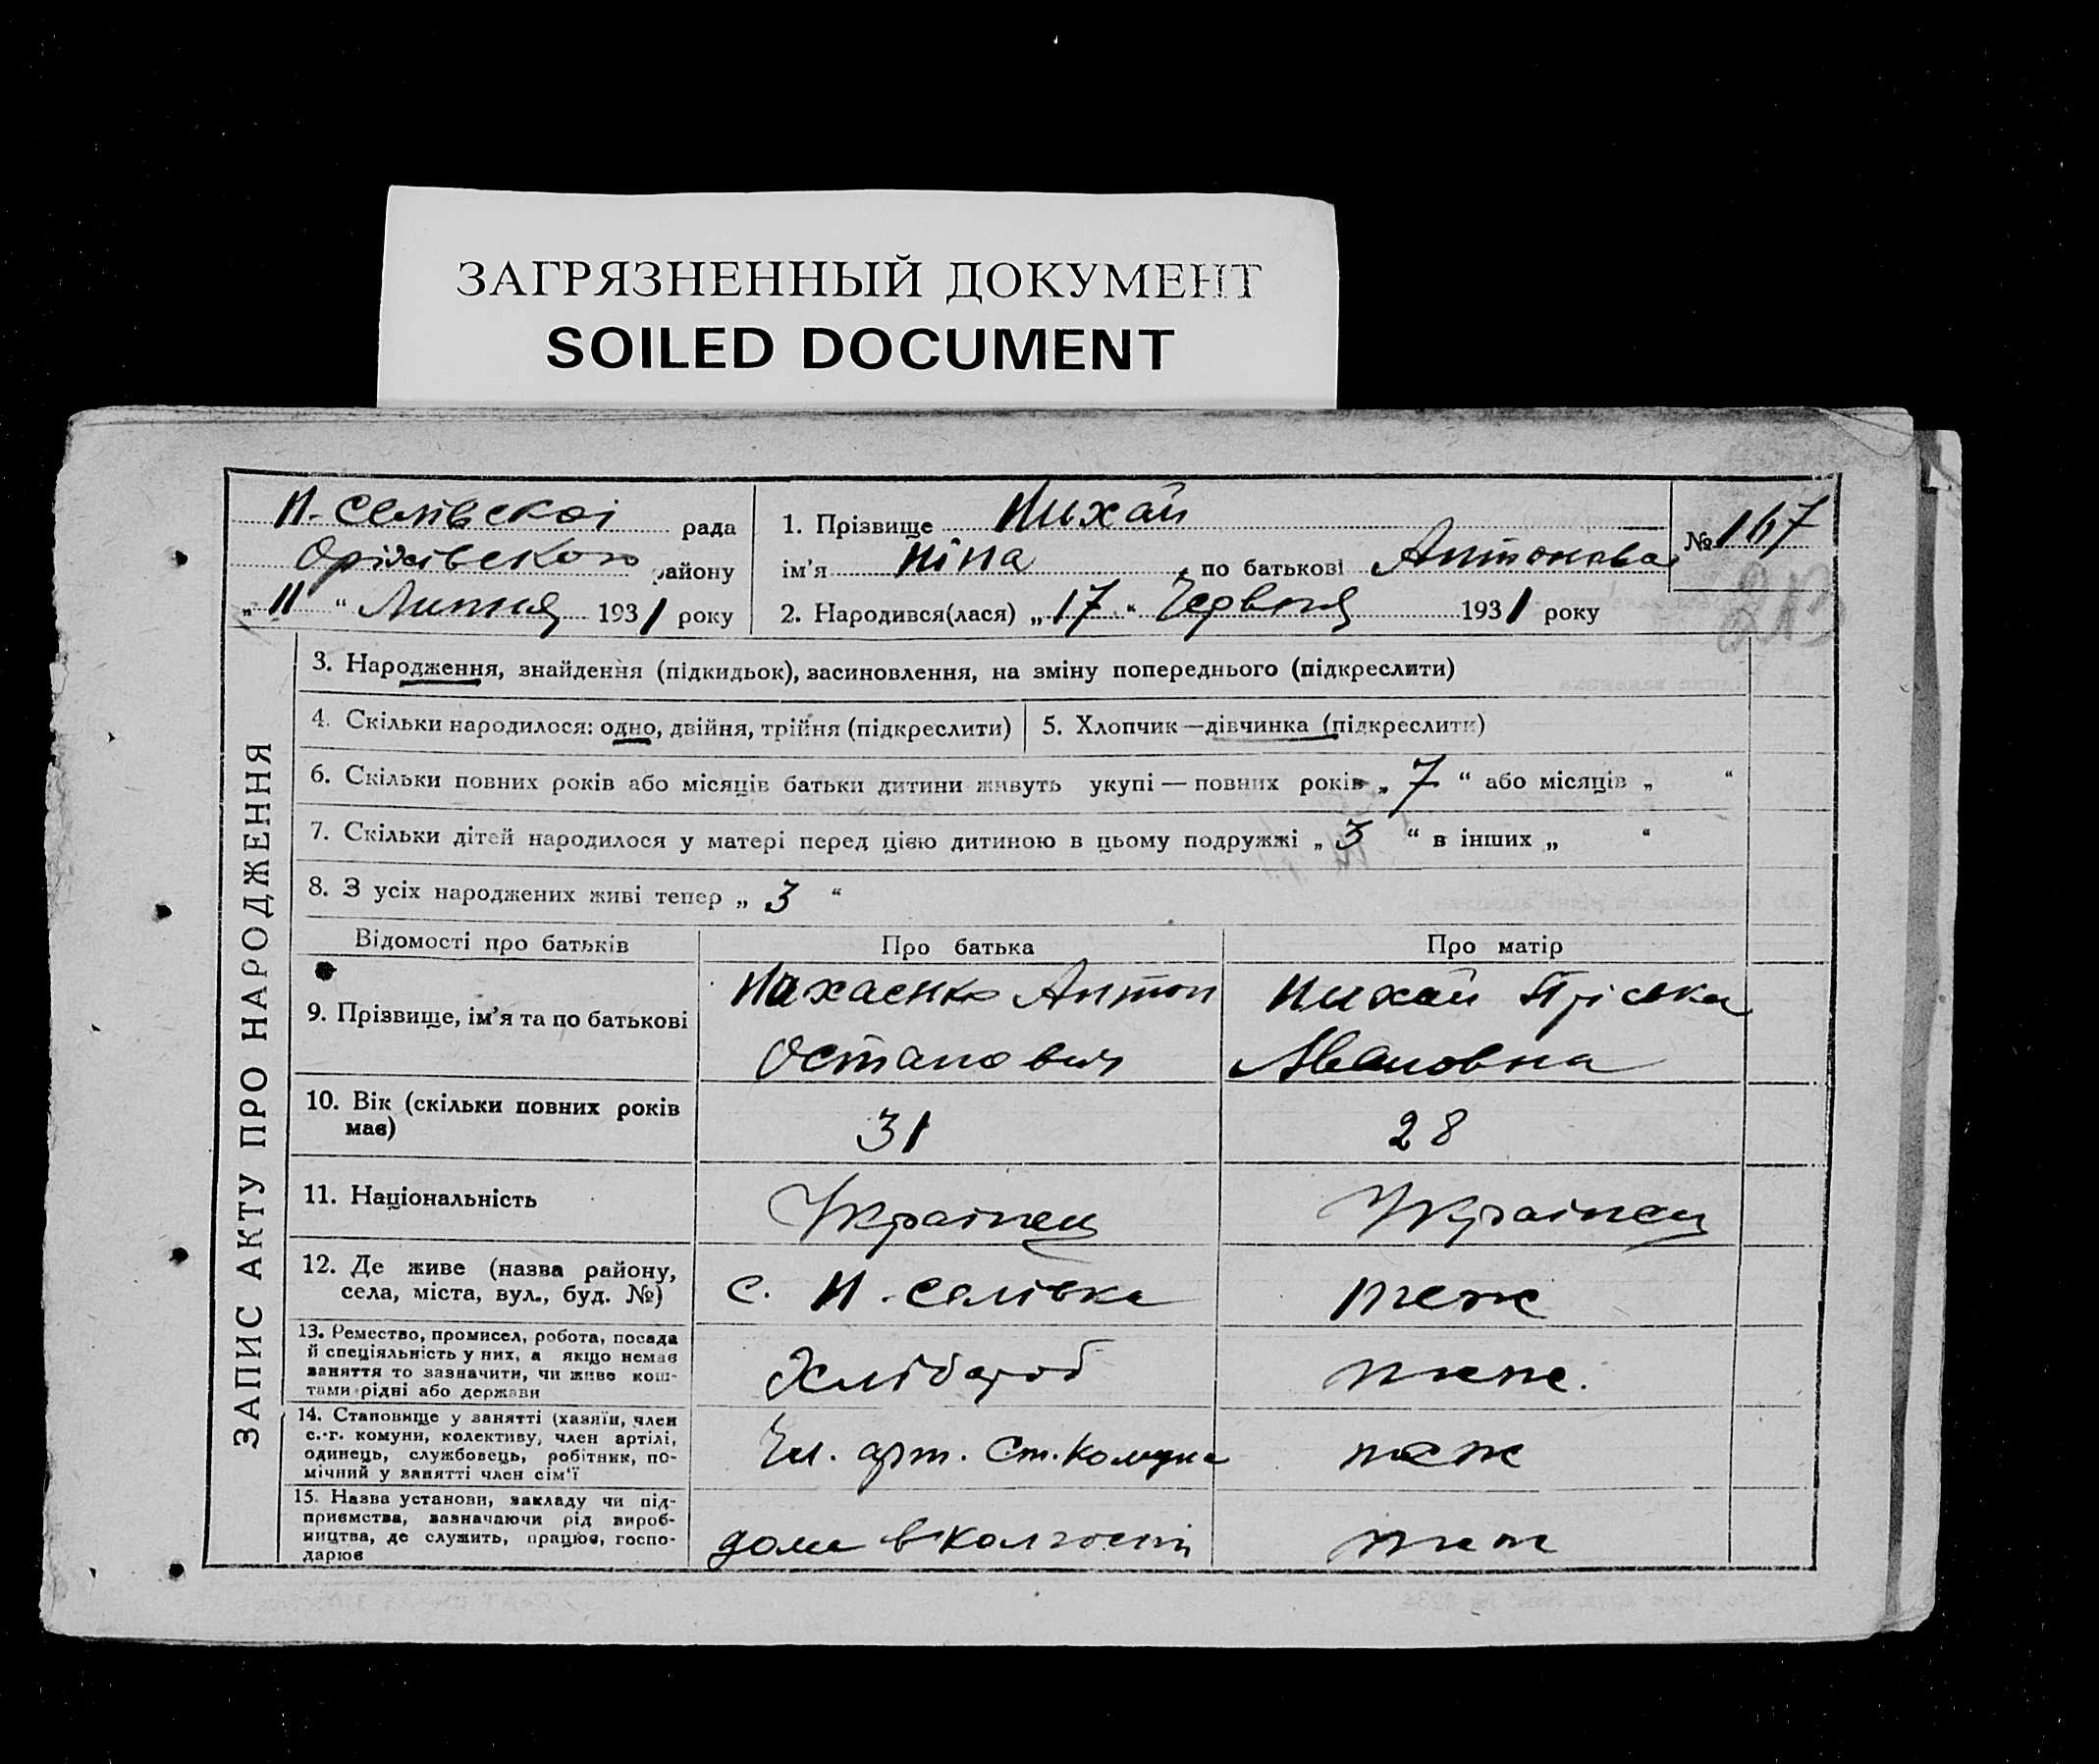 ЗАГРЯЗНЕННЫЙ ДОКУМЕНТ
SOILED DOCUMENT
Н.-Селівської рада
Оржівского району
„ 11 “ Липня 1931 року
1. Прізвище Михай
ім’я Ніна, по батькові Антонова
2. Народився(лася) „ 17 “ Червня 1931 року
№ 167
213
ЗАПИС АКТУ ПРО НАРОДЖЕННЯ
3. Народження, знайдення (підкидьок), засиновлення, на зміну попереднього (підкреслити)
4. Скільки народилося: одно, двійня, трійня (підкреслити)
5. Хлопчик—дівчинка (підкреслити)
6. Скільки повних років або місяців батьки дитини живуть укупі — повних років „ 7 “ або місяців „ “
7. Скільки дітей народилося у матері перед цією дитиною в цьому подружжі „ 3 “ в інших „ “
8. З усіх народжених живі тепер „ 3 “
Відомості про батьків Про батька Про матір
9. Прізвище, ім’я та по батькові
Антон
Остапович
Михай Пріська
Ивановна
10. Вік (скільки повних років має)
31
28
11. Національність
Українец
Українец
12. Де живе (назва району,
села, міста, вул., буд. №)
с. Н.-Селівка
теж
13. Ремество, промисел, робота, посада
й спеціяльність у них, а якщо немає
заняття то зазначити, чи живе кош-
тами рідні або держави
Хлібороб
теж.
14. Становище у занятті (хазяїн, член
с.-г. комуни, колективу, член артілі,
одинець, службовець, робітник, по-
мічний у занятті член сім’ї
Чл. арт. Ст. Комуна
теж
15. Назва установи, закладу чи під-
приємства, зазначаючи рід вироб-
ництва, де служить, працює, госпо-
дарює
дома в колгоспі
теж